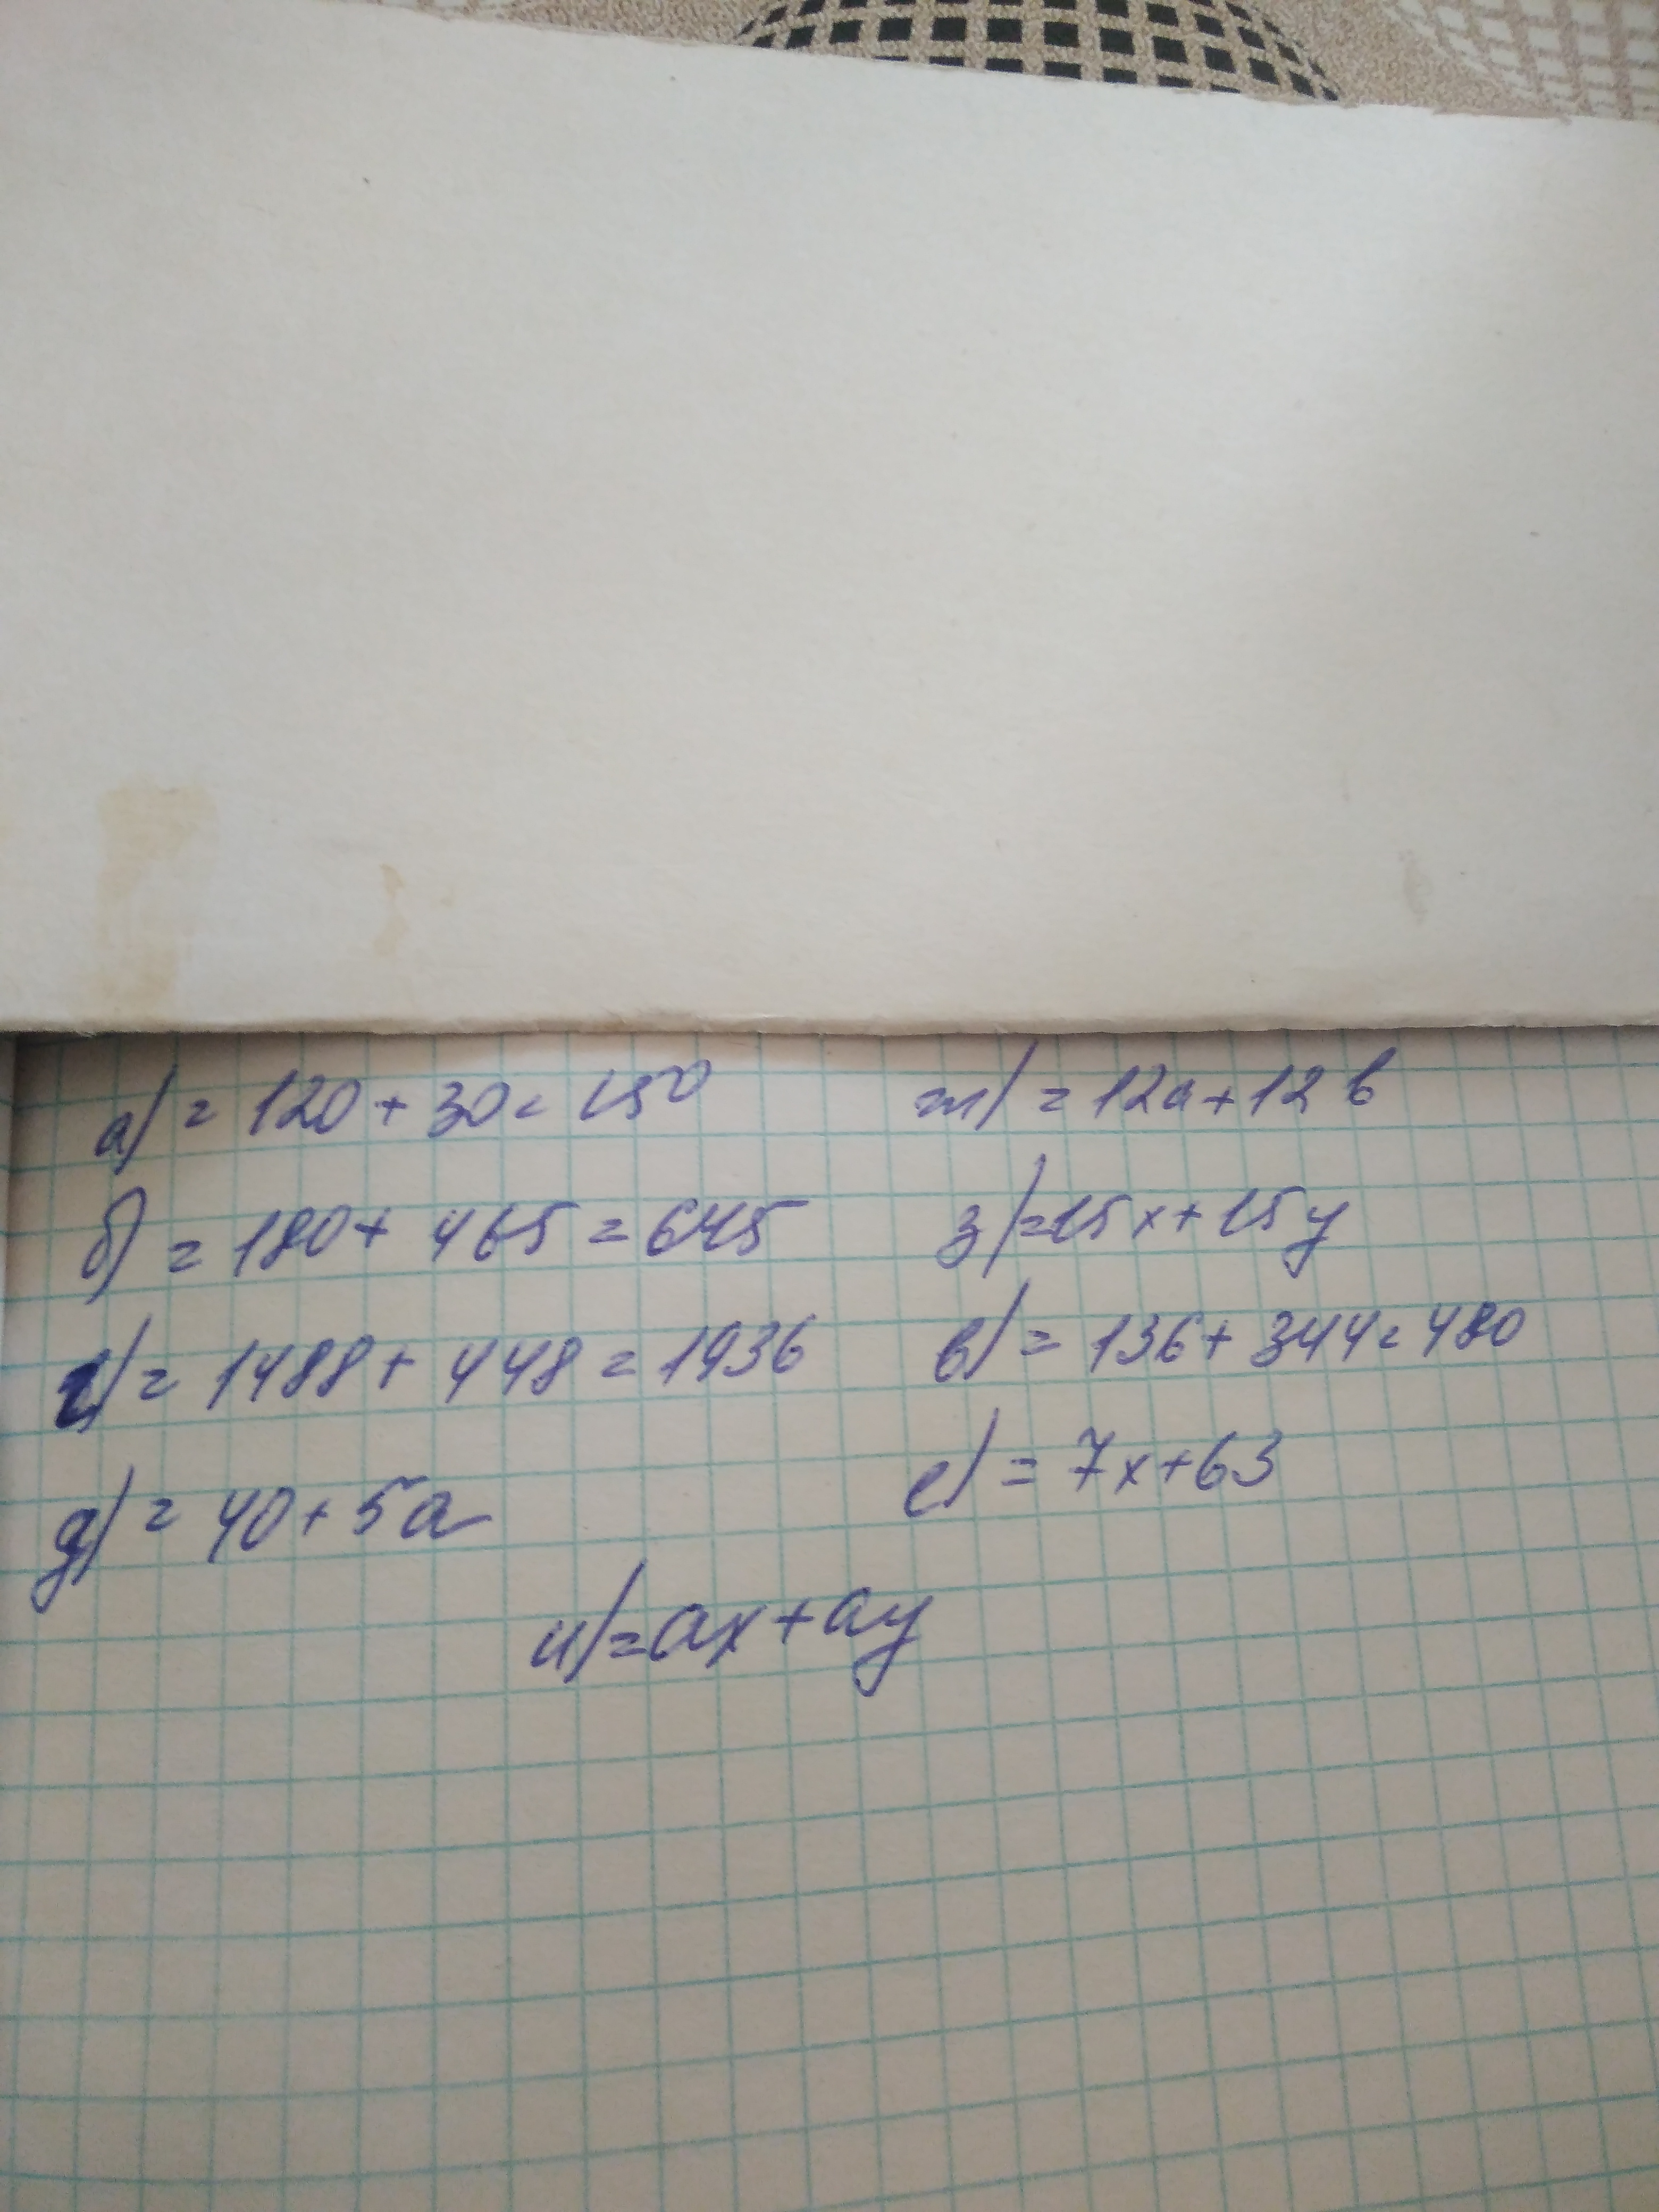 а) = 120 + 30 = 150
ж) = 12a + 12b
б) = 180 + 465 = 645
з) = 15x + 15y
г) = 1488 + 448 = 1936
в) = 136 + 344 = 480
д) = 40 + 5a
е) = 7x + 63
и) = ax + ay